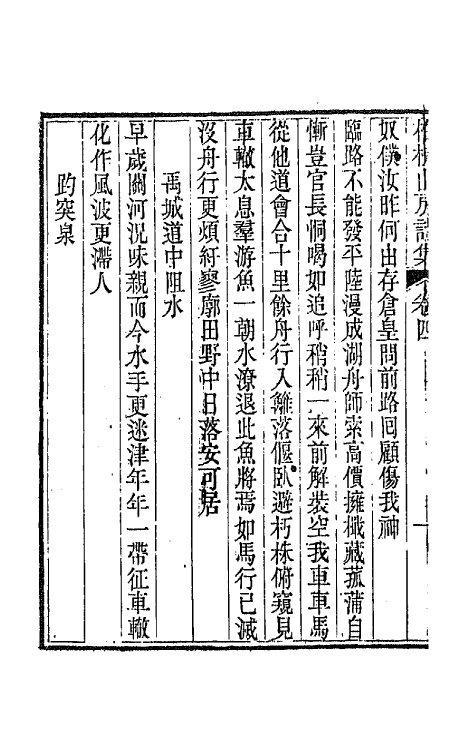 山房詩集 卷四
奴僕汝昨何由存倉皇問前路囘顧傷我神
臨路不能發平陸漫成湖舟師索高價擁檝藏菰蒲自
慚豈官長恫喝如追呼稍稍一來前解裝空我車車馬
從他道會合十里餘舟行入籬落偃臥避朽株俯窺見
車轍太息羣游魚一朝水潦退此魚將焉如馬行已滅
沒舟行更煩紆寥廓田野中日落安可居
禹城道中阻水
早歲關河況味親而今水手更迷津年年一帶征車轍
化作風波更滯人
趵突泉